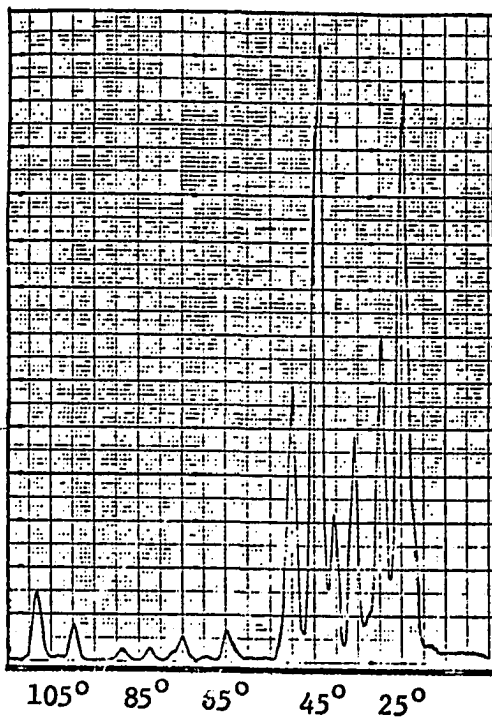 105° 85° 65° 45° 25°